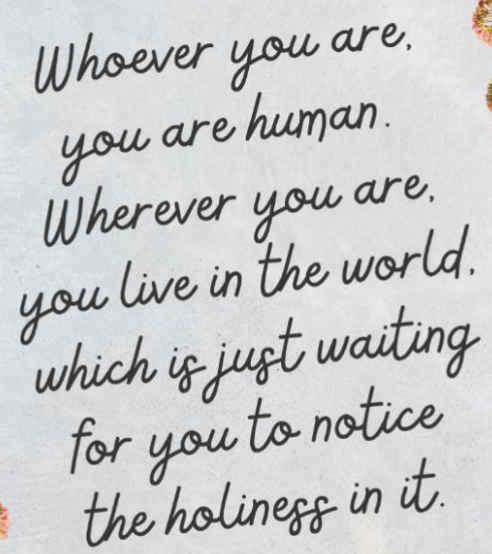 Whoever you are,
you are human.
Wherever you are,
you live in the world,
which is just waiting
for you to notice
the holiness in it.